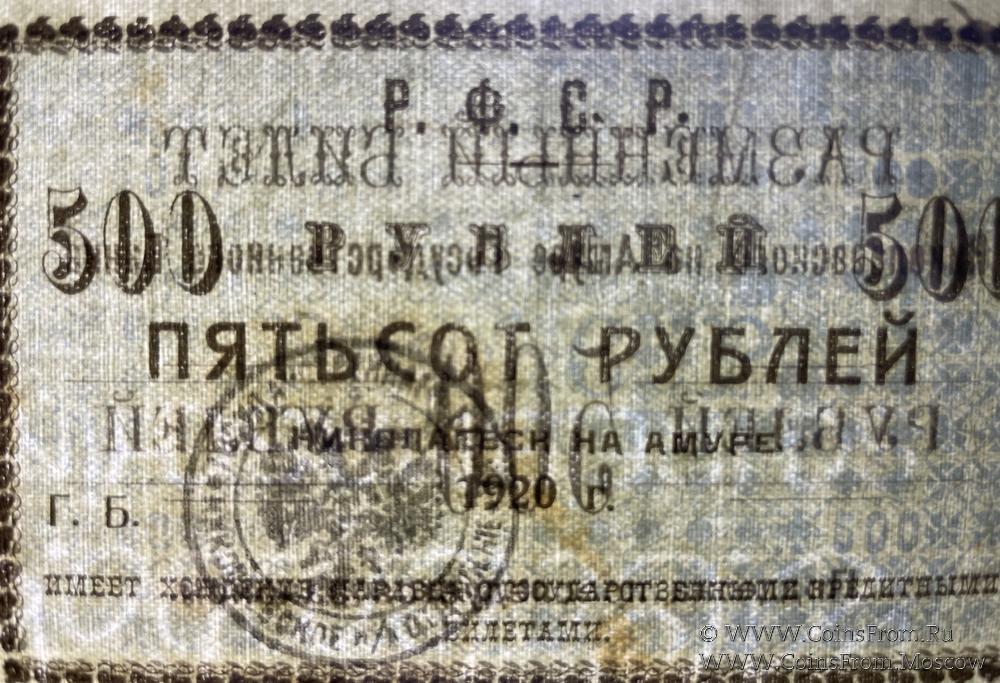 Р. Ф. С. Р.
РАЗМѢННЫЙ БИЛЕТ
500 РУБЛЕЙ 500
ПЯТЬСОТ РУБЛЕЙ
РУБЛЕЙ 500 РУБЛЕЙ
НИКОЛАЕВСК НА АМУРЕ.
1920 г.
Г. Б.
500
ИМЕЕТ ХОЖДЕНИЕ НАРАВНЕ С ГОСУДАРСТВЕННЫМИ КРЕДИТНЫМИ
БИЛЕТАМИ.
© WWW.CoinsFrom.Ru
WWW.CoinsFrom.Moscow